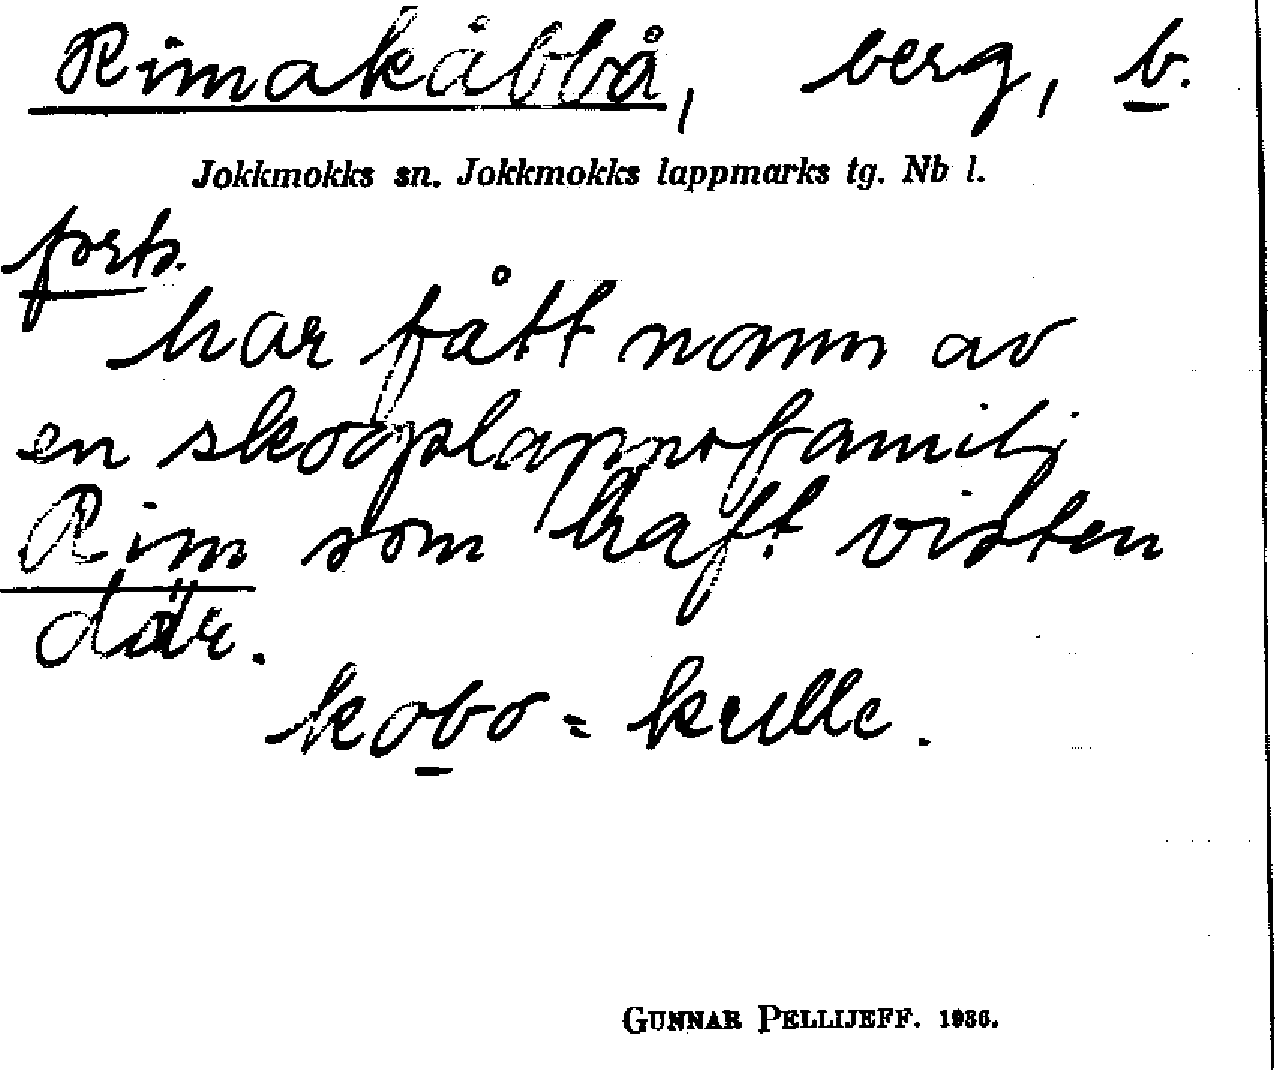 Rimakåbbå, berg, b.
Jokkmokks sn. Jokkmokks lappmarks tg. Nb l.
forts.
har fått namn av
en skogslappsfamilj
Rim som haft visten
där.
kobo = kulle.
GUNNAR PELLIJEFF. 1936.